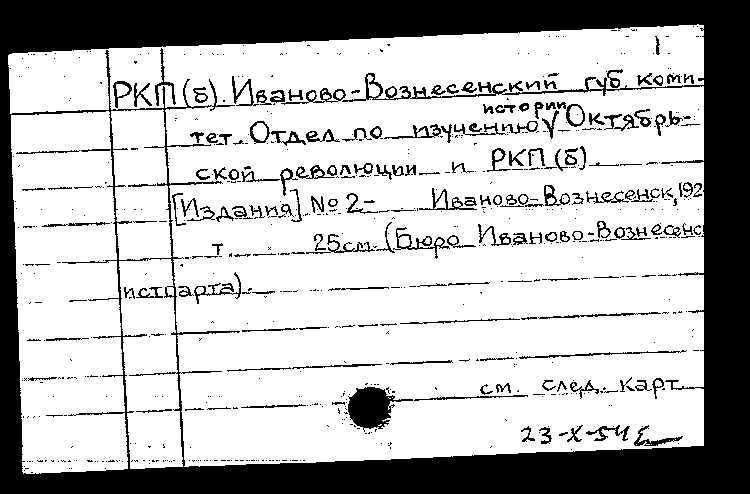 1
РКП(б). Иваново-Вознесенский губ. коми-
тет. Отдел по изучению истории Октябрь-
ской революции и РКП(б).
[Издания] № 2- Иваново-Вознесенск, 192
т. 25см. (Бюро Иваново-Вознесенс
истпарта).
см. след. карт.
23-X-54